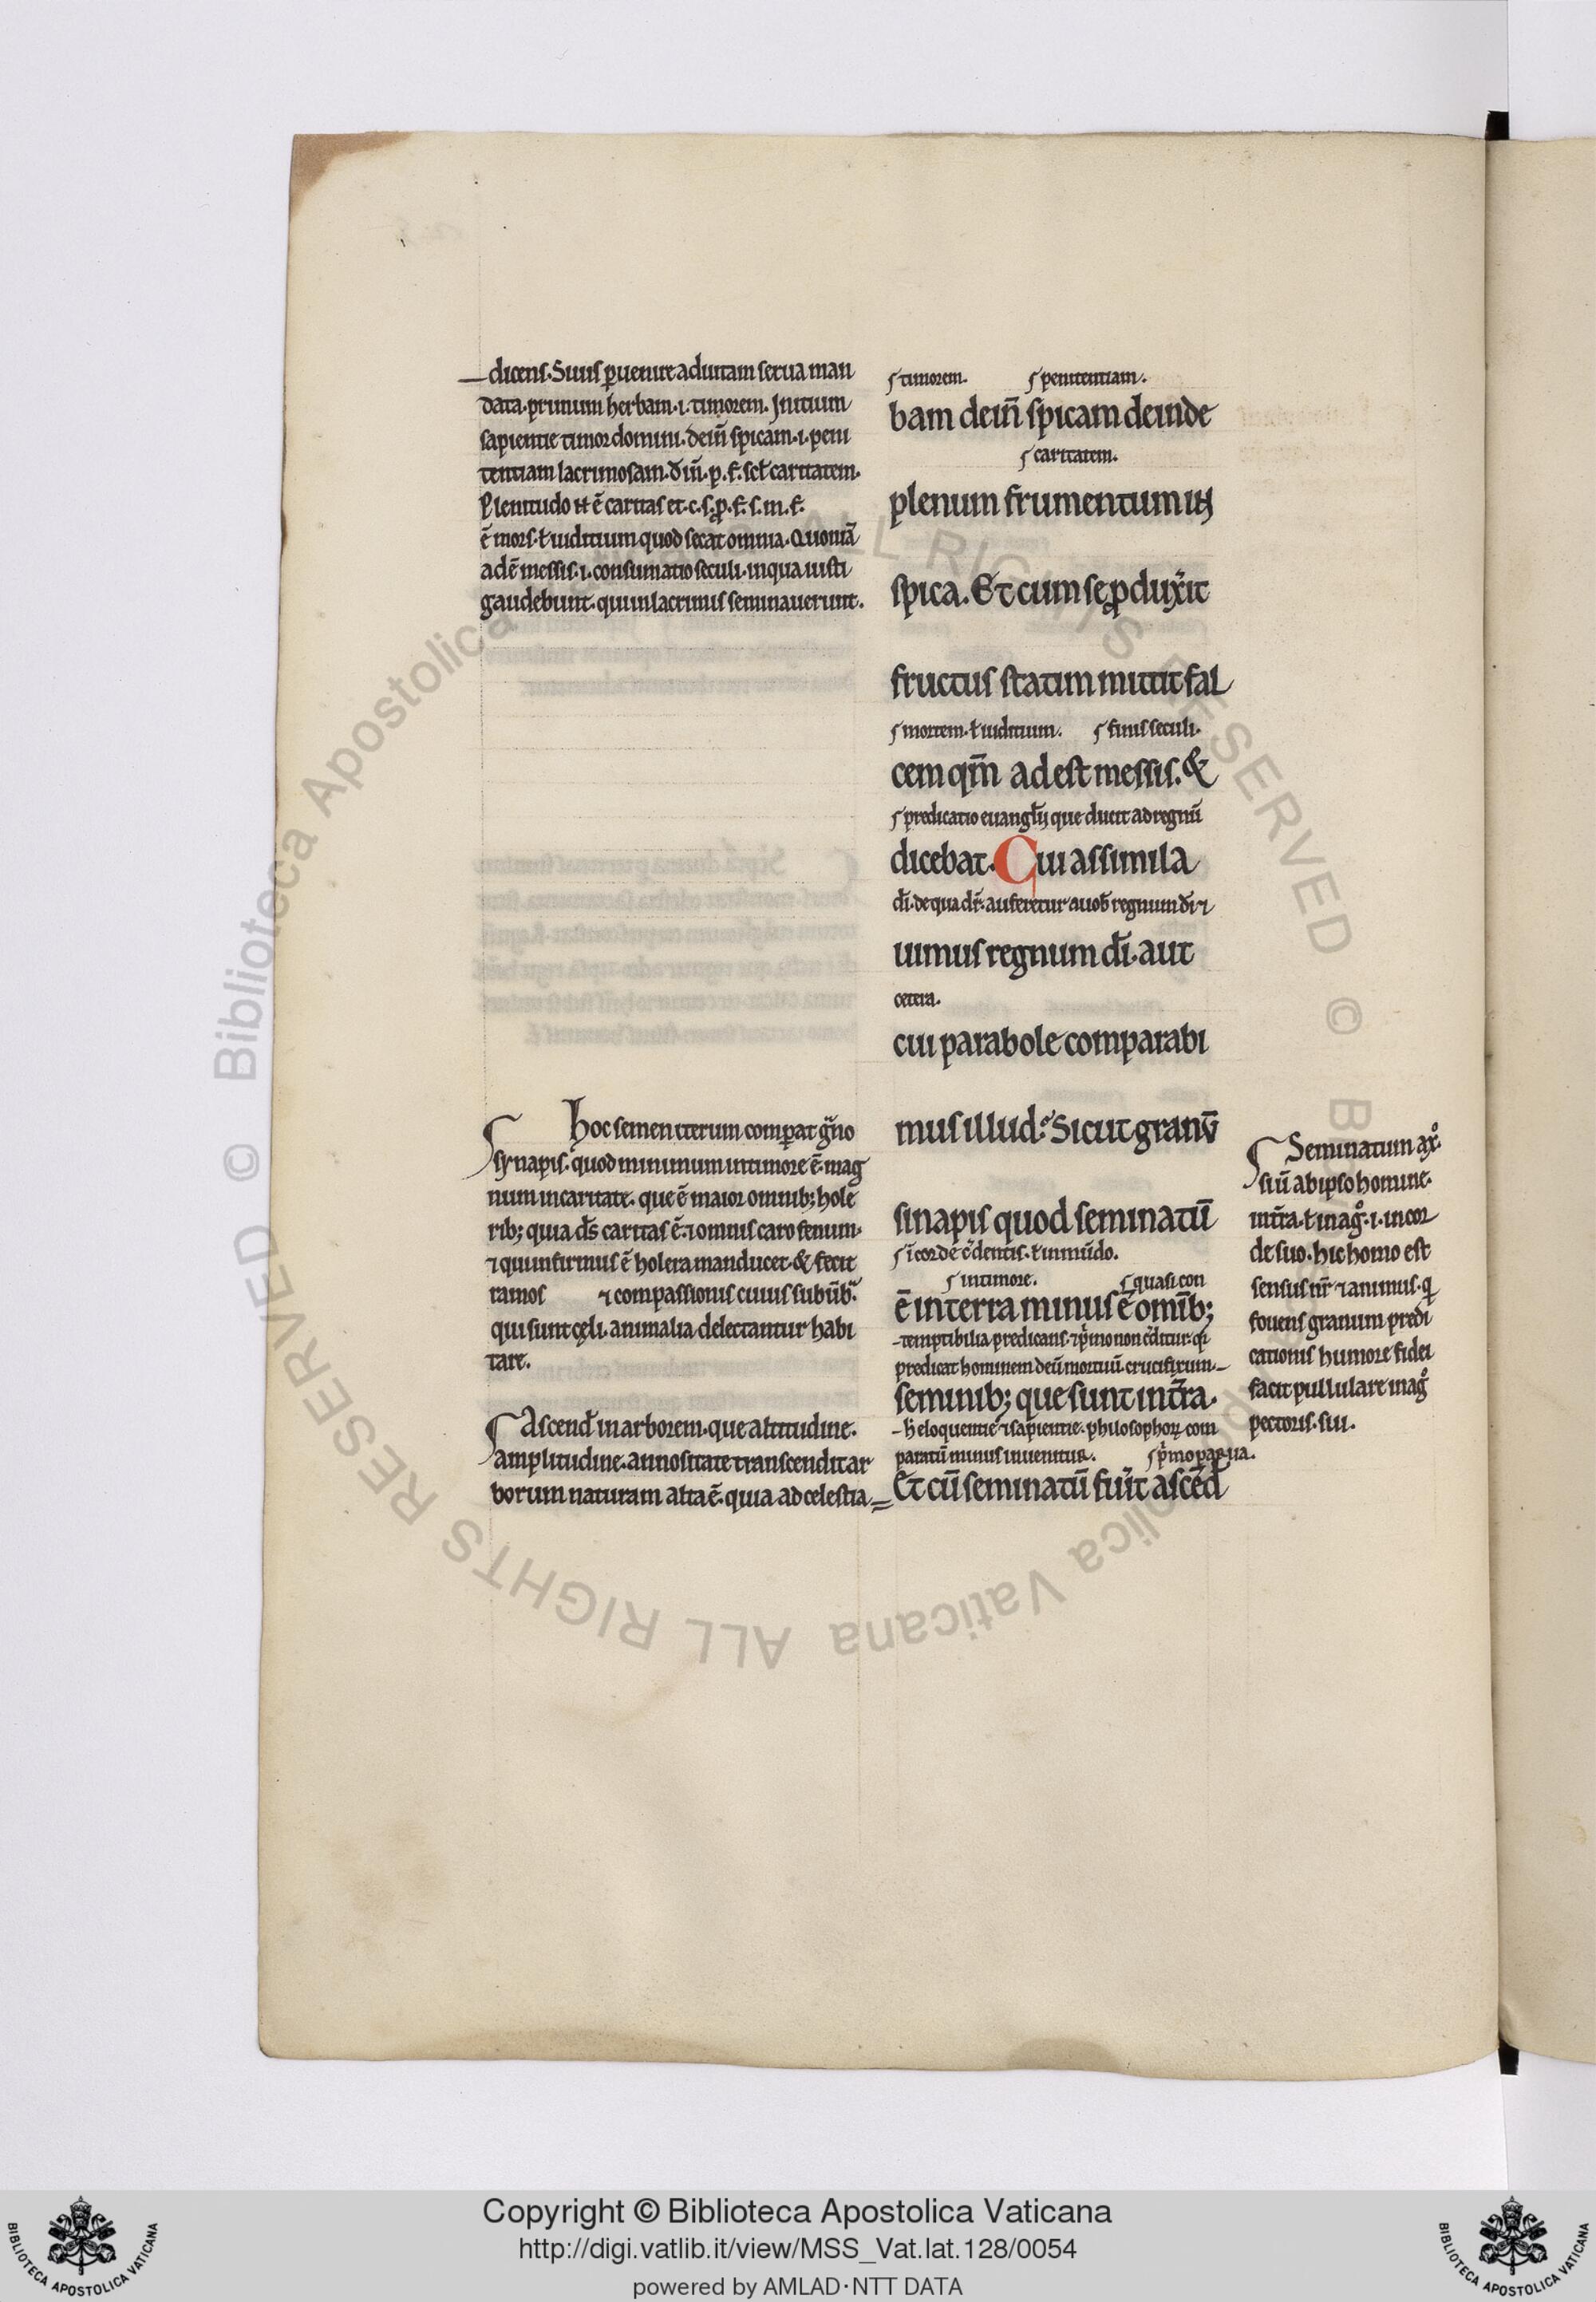 dicens. Si uis p̱uenire ad uitam serua man
data. primum herbam .i. timorem. Initium
sapientie timor domini. dein̄ spicam .i. peni
tentiam lacrimosam. d̄in̄. p. f. scł caritatem.
Plenitudo ē caritas et. c. s. ꝓ. f. s. m. f.
ē mors. ł iuditium quod secat omnia. Quoniā
adē messis .i. consumatio seculi. in qua iusti
gaudebunt. qui in lacrimis seminauerunt.
hoc semen iterum comparat g̃no
synapis. quod minimum in timore ē. mag
num in caritate. que ē maior omnib; hole
rib; quia d̄s caritas ē. ⁊ omnis caro fenum.
⁊ qui infirmus ē holera manducet. & fecit
ramos ⁊ compassionis cuius sub ūbᵃ
qui sunt cęli. animalia delectantur habi
tare.
Ascend̄ in arborem. que altitudine.
amplitudine. annositate transcendit ar
borum naturam alta ē. quia ad celestia
timorem. penitentiam.
bam dein̄ spicam deinde
caritatem.
plenum frumentum in
spica. Et cum se ꝓduxit
fructus statim mittit fal
mortem. ł iuditium. finis seculi.
cem qm̄ adest messis. &
predicatio euangłij que ducit ad regnū
dicebat. Cui assimila
d̄i. de qua dr̄. auferetur a uob̄ regnum d̄i ⁊
uimus regnum d̄i. aut
cetera.
cui parabole comparabi
mus illud? Sicut granū
sinapis quod seminatū
ī corde c̃dentis. ł in mūdo.
in timore. quasi con
ē in terra minus ē omīb;
temptibilia predicans. ⁊ p̃mo non c̃ditur. q̄
predicat hominem deū mortuū. crucifixum
seminib; que sunt in t̃ra.
h eloquentie ⁊ sapientie. philosophoꝝ com
paratū minus inuenitur. p̃mo parua.
Et cū seminatū fuīt ascēd̄
Seminatum
suū ab ipso homine.
in t̃ra. ł in agº .i. in cor
de suo. hic homo est
sensus nr̄ ⁊ animus. q
fouens granum predi
cationis humore fidei
facit pullulare in agº
pectoris. sui.
Copyright © Biblioteca Apostolica Vaticana
http://digi.vatlib.it/view/MSS_Vat.lat.128/0054
powered by AMLAD·NTT DATA
© Biblioteca Apostolica Vaticana ALL RIGHTS RESERVED
BIBLIOTECA APOSTOLICA VATICANA
BIBLIOTECA APOSTOLICA VATICANA